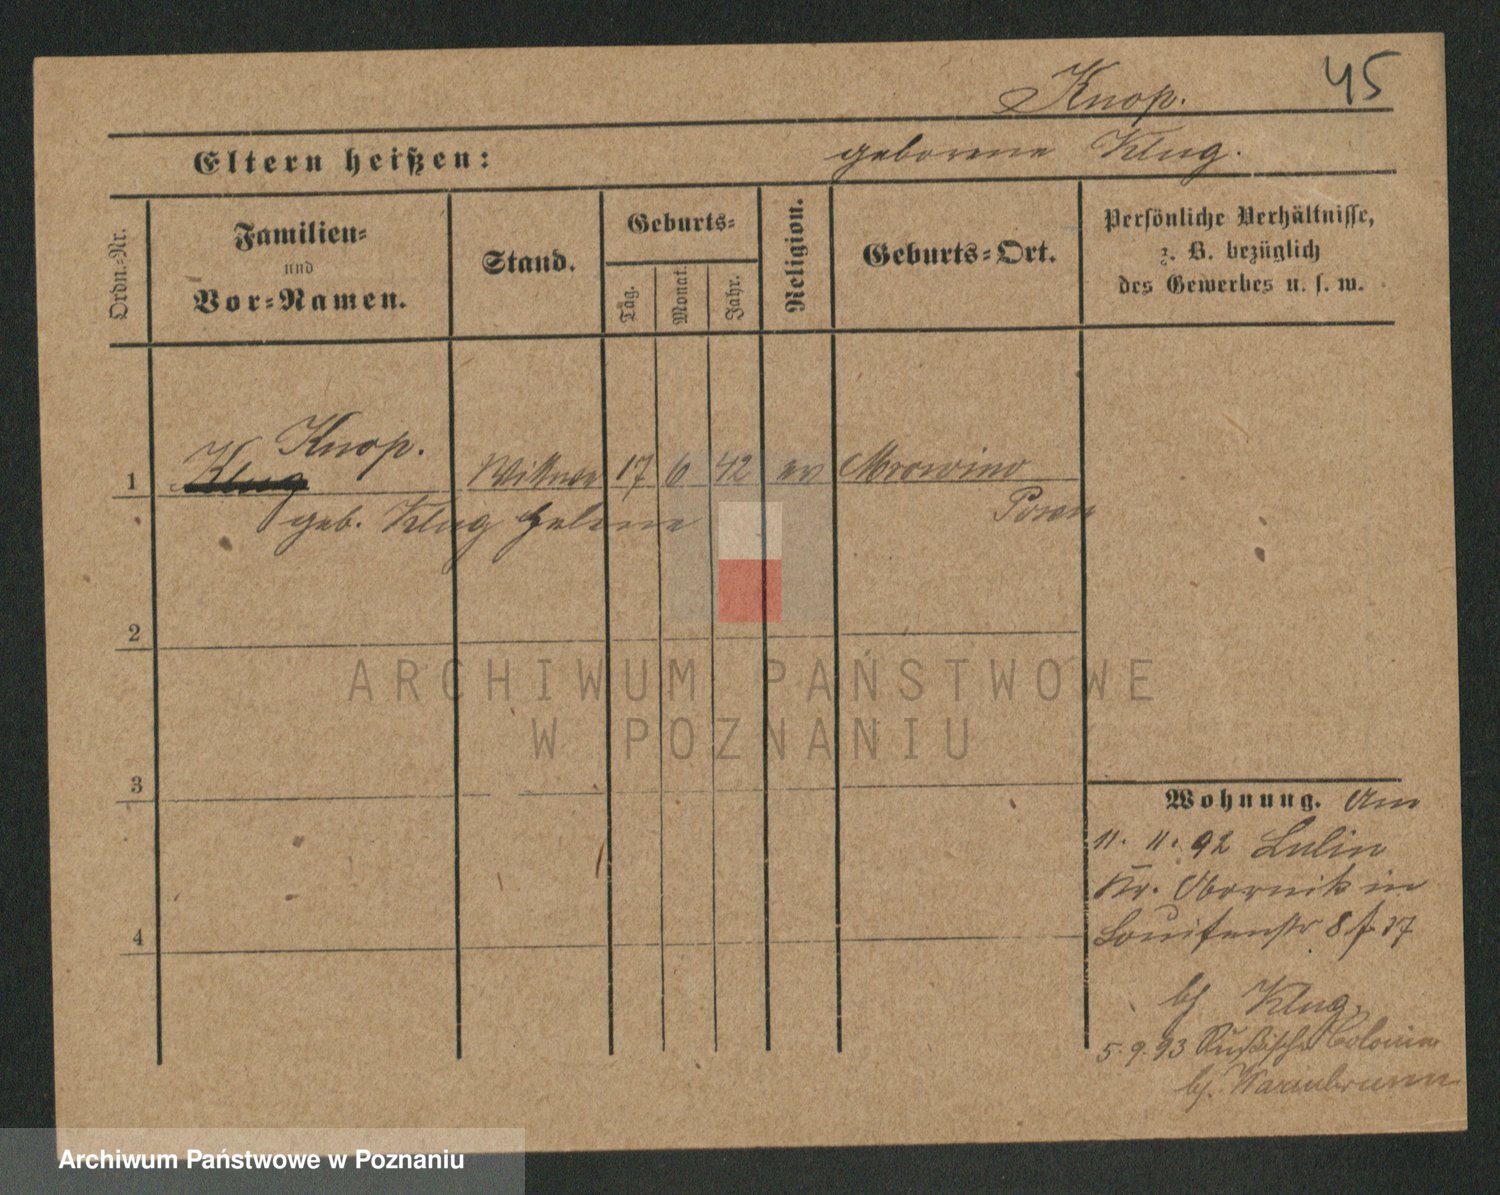 45
Knop.
Eltern heißen: geborene Klug.
Ordn.-Nr.
Familien-
und
Vor-Namen.
Stand.
Geburts-
Tag.
Monat.
Jahr.
Religion.
Geburts-Ort.
Persönliche Verhältnisse,
z. B. bezüglich
des Gewerbes u. s. w.
Knop.
1 Klug 17 6 42 ev Mrowino
geb. Klug Helene Posen
2
ARCHIWUM PAŃSTWOWE
W POZNANIU
3
Wohnung. Am
11. 11. 92 Lulin
Kr. Obornik in
Louisenstr 8 17
4
bei Klug.
5. 9. 93 Russische Colonie
b. Warmbrunn
Archiwum Państwowe w Poznaniu